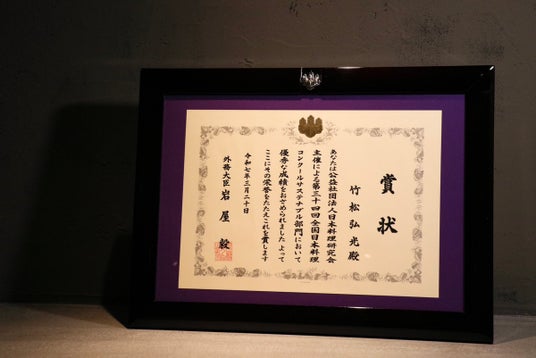 賞状
竹松弘光殿
あなたは公益社団法人日本料理研究会
主催による第三十四回全国日本料理
コンクールサステナブル部門において
優秀な成績をおさめられました よって
ここにその栄誉をたたえこれを賞します
令和七年三月二十日
外務大臣 岩屋 毅